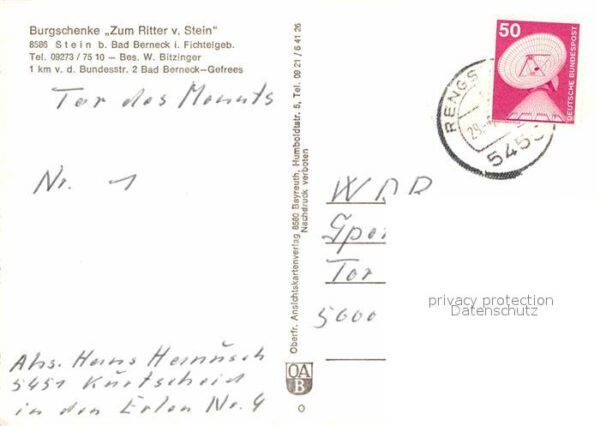 Burgschenke „Zum Ritter v. Stein"
8586 Stein b. Bad Berneck i. Fichtelgeb.
Tel. 09273/7510 – Bes. W. Bitzinger
1 km v. d. Bundesstr. 2 Bad Berneck-Gefrees
Tor des Monats
Nr. 1
Abs. Hans
5451 Kurtscheid
in den Erlen Nr. 4
Oberfr. Ansichtskartenverlag 8580 Bayreuth, Humboldtstr. 5, Tel. 09 21 / 6 41 26
Nachdruck verboten
OA
B
50
DEUTSCHE BUNDESPOST
RENGS
545
WDR
Spor
Tor
5000
privacy protection
Datenschutz